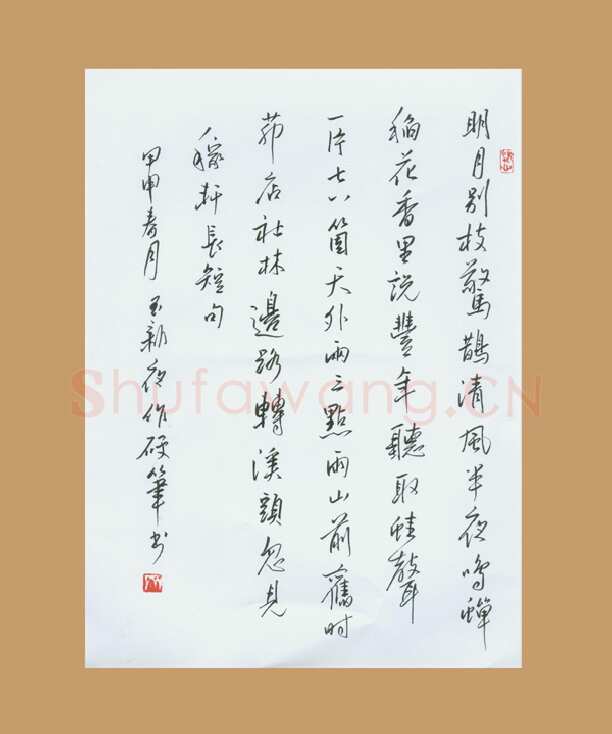 明月别枝驚鵲清風半夜鳴蟬
稻花香里説豐年聽取蛙聲
一片七八箇天外兩三點雨山前舊时
茆店社林邊路轉溪頭忽見
稼軒長短句
甲申春月玉新夜作硬筆书
Shufawang.CN